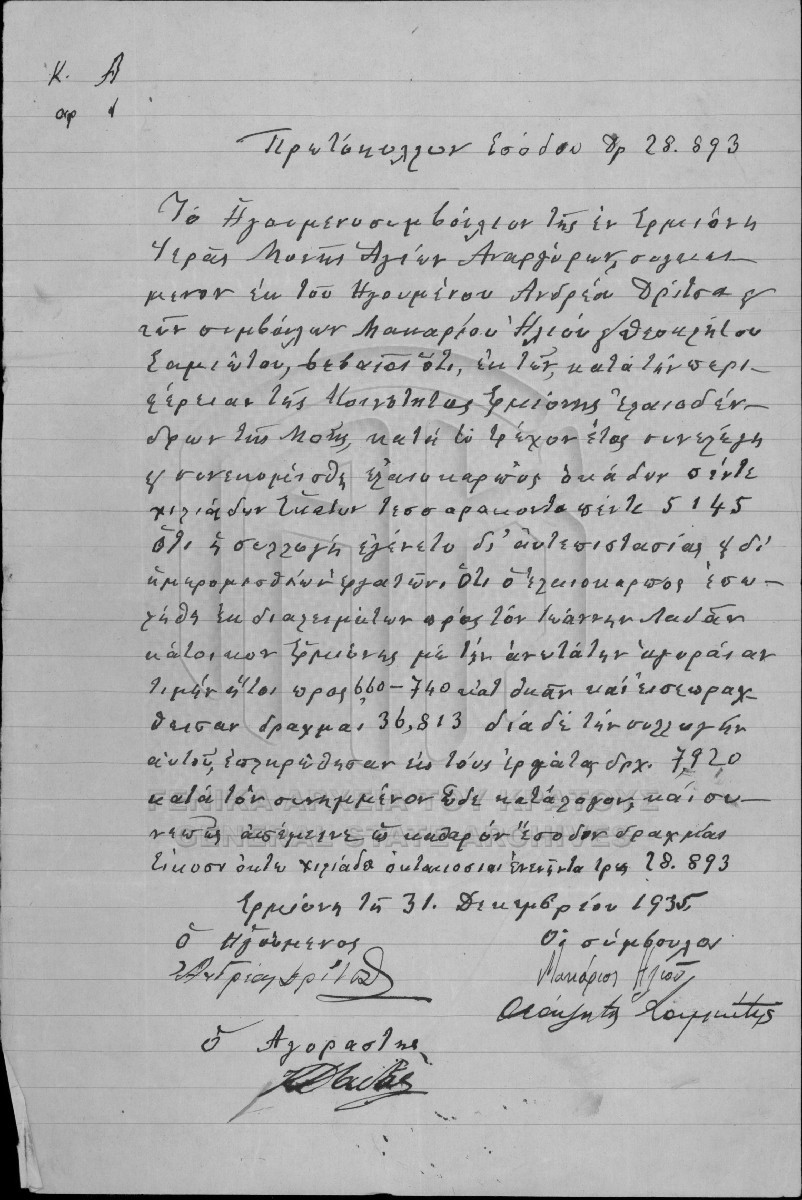 Κ. Α
αρ 1
Πρωτόκολλων Εσόδου δρ 28.893
Τό Ηγουμενοσυμβούλιον τῆς ἐν Ερμιόνη
Ἱερᾶς Μονῆς Ἁγίων Αναργύρων, συγκεί-
μενον ἐκ τοῦ Ηγουμένου Ανδρέα Δρίτσα &
τῶν συμβούλων Μακαρίου Ἠλιού & Θεοκλήτου
Σαμιώτου, βεβαιοῖ ὅτι, ἐκ τῶν, κατά τήν περι-
φέρειαν τῆς Κοινότητος Ερμιόνης Ἐλαιοδέν-
δρων τῆς Μονῆς, κατά τό τρέχον ἔτος συνελέγη
& συνεκομίσθη ἐλαιοκαρπος ὀκάδων πέντε
χιλιάδων Ἑκατον τεσσαρακοντα πέντε 5145
Ὅτι ἡ συλλογή ἐγένετο δι' αὐτεπιστασίας & δι'
ἡμερομισθίων ἐργατῶν. Ὅτι ὁ ἐλαιοκαρπος ἐπω-
λήθη ἐκ διαλειμάτων πρός τόν Ἰωάννην Λαδᾶν
κάτοικον Ερμιόνης μέ τήν ἀνωτάτην ἀγοράιαν
τιμήν ἤτοι προς 6.60-7.40 κατ ὀκᾶν καί εισεπραχ-
θεισαν δραχμαί 36,813 διά δέ τήν συλλογήν
αὐτοῦ, ἐπληρώθησαν εἰς τούς ἐργάτας δρχ. 7,920
κατά τόν συνημμένον ὧδε κατάλογον, καί συ-
νεπῶς ἀπέμεινε ὡς καθαρόν ἔσοδον δραχμαί
Εἰκοσι ὀκτω χιλιάδες ὀκτακοσιαι ἐνενῆντα τρεῖς 28.893
Ερμιόνη τῆ 31. Δεκεμβρίου 1935
ὁ Ηγούμενος
Οἱ σύμβουλοι
Ανδρέας Δρίτσας
Μακάριος Ηλιού
Θεόκλητος Σαμιώτης
Ὁ Αγοραστής
ΓΕΝΙΚΑ ΑΡΧΕΙΑ ΤΟΥ ΚΡΑΤΟΥΣ
GENERAL STATE ARCHIVES